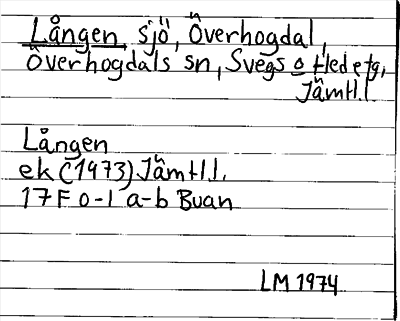 Lången, sjö, Överhogdal,
Överhogdals sn, Svegs o Hede tg,
Jämtl.l.
Lången
ek (1973) Jämtl.l.
17F 0-1 a-b Buan
LM 1974